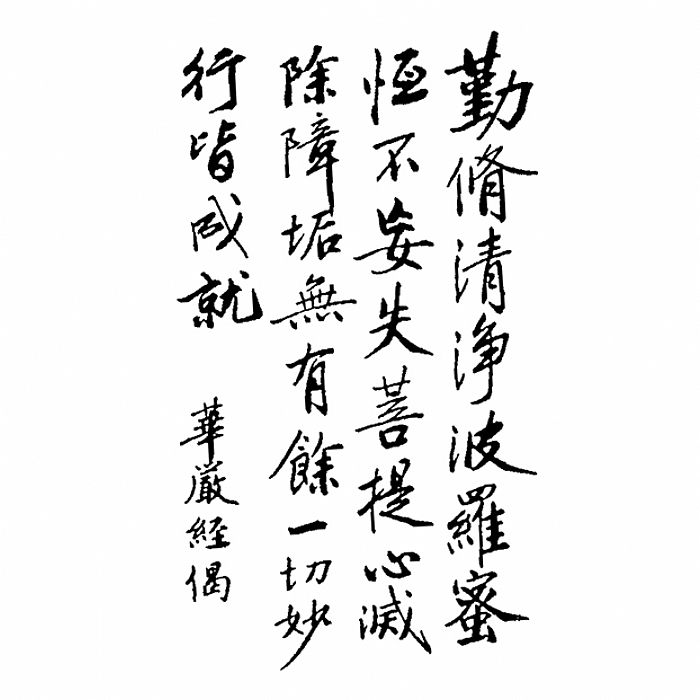 勤脩清淨波羅蜜
恒不妄失菩提心滅
除障垢無有餘一切妙
行皆成就
華厳経偈